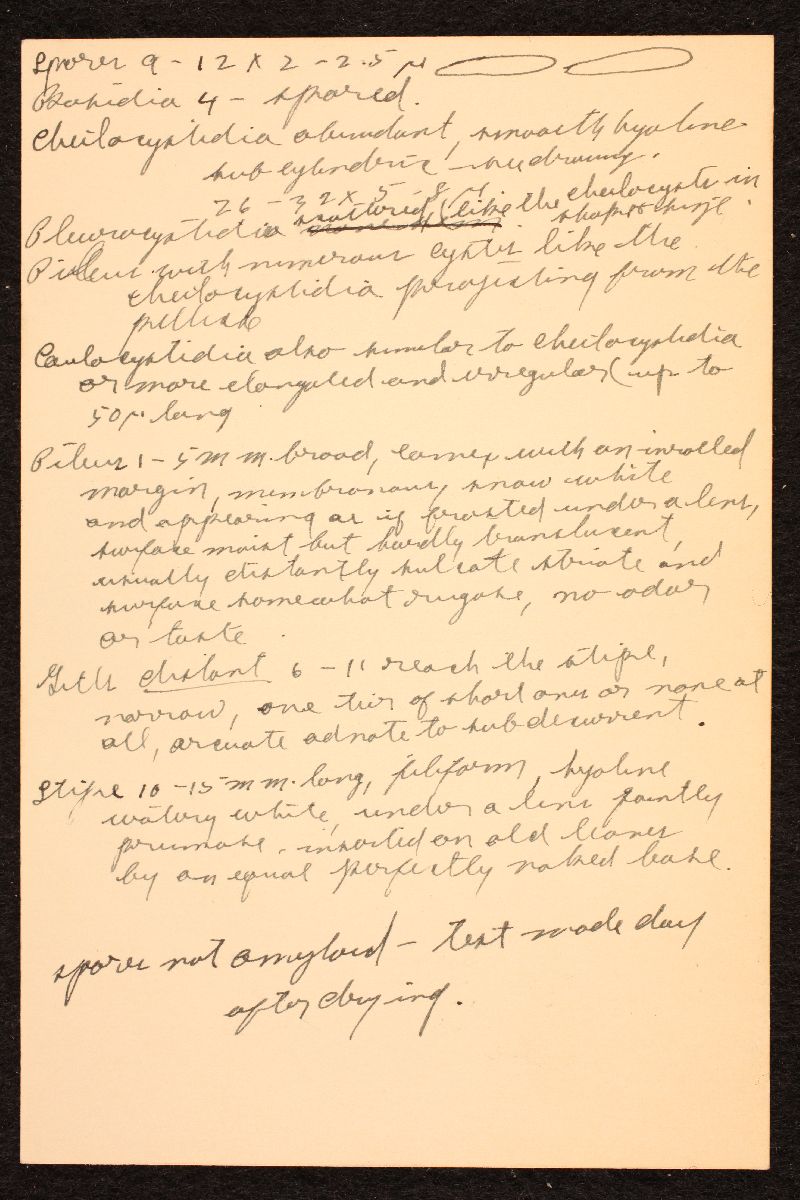 Spores 9 - 12 x 2 - 2.5 µ
Basidia 4 - spored.
Cheilocystidia abundant, smooth hyaline
subcylindric - see drawing.
26 - 32 x 5 - 8 µ
Pleurocystidia scattered (like the cheilocysts in shape & size.
Pileus with numerous cysts like the
cheilocystidia projecting from the
pellicle
Caulocystidia also similar to cheilocystidia
or more elongated and irregular (up to
50µ long
Pileus 1 - 5 mm. broad, convex with an inrolled
margin, membranous, snow white
and appearing as if frosted under a lens,
surface moist but hardly translucent,
usually distantly sulcate striate and
surface somewhat rugose, no odor
or taste.
Gills distant 6 - 11 reach the stipe,
narrow, one tier of short ones or none at
all, arcuate adnate to subdecurrent.
Stipe 10 - 15 mm. long, filiform, hyaline
watery white, under a lens faintly
pruinose, inserted on old leaves
by an equal perfectly naked base.
spores not amyloid - test made day
after drying.